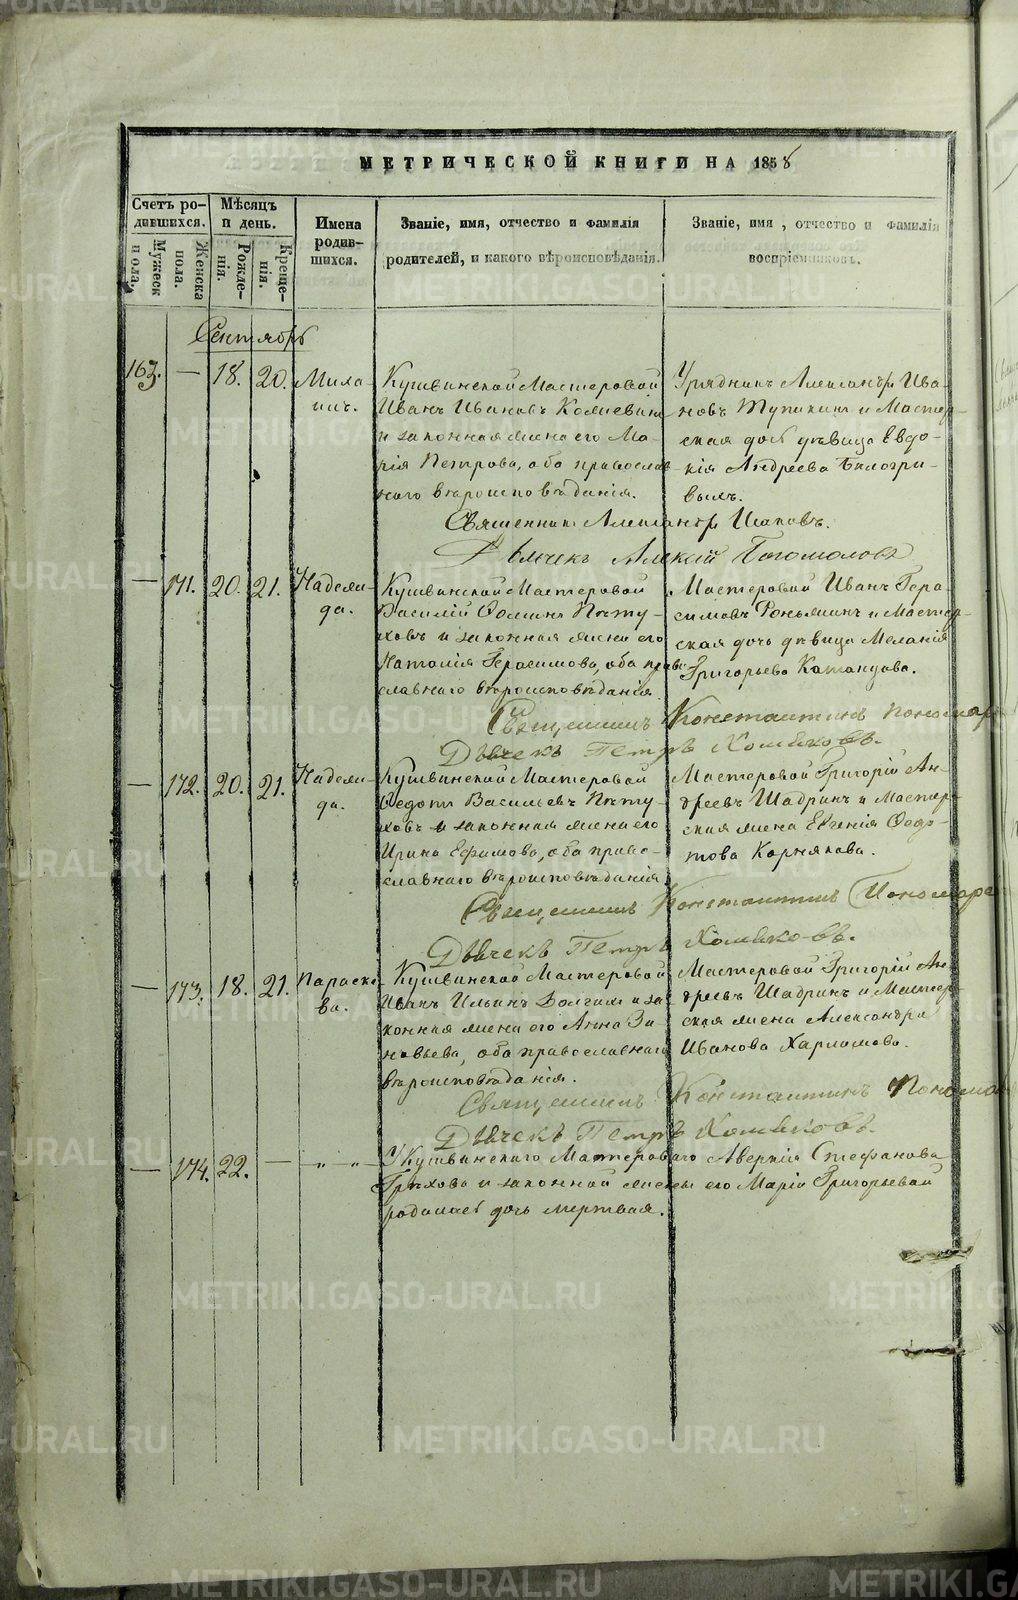 МЕТРИЧЕСКОЙ КНИГИ НА 1858
Счетъ ро-
дившихся.
Мѣсяцъ
и день.
Имена
родив-
шихся.
Званіе, имя, отчество и фамилія
родителей, и какого вѣроисповѣданія.
Званіе, имя, отчество и фамилія
воспріемниковъ.
Мужеск
пола.
Женска
пола.
Рожде-
нія.
Креще-
нія.
Сентябрь
163. — 18. 20.
Кушвинской Мастеровой
Иванъ Ивановъ
и законная жена его Ма-
рія Петрова, оба православ-
наго вѣроисповѣданія.
Урядникъ Александръ Ива-
новъ и Мастер-
ская дочь дѣвица Евдо-
кія Андреева Бѣлогри-
выхъ.
Священникъ Александръ
Дьячекъ Алексій Богомоловъ
— 171. 20. 21.
Надежи-
да.
Кушвинской Мастеровой
Василій Ѳоминъ Пѣту-
ховъ и законная жена его
Наталія Герасимова, оба право-
славнаго вѣроисповѣданія.
Мастеровой Иванъ Гера-
симовъ и Мастер-
ская дочь дѣвица Меланія
Григорьева
Священникъ Константинъ Пономар
Дьячекъ Петръ Хомяковъ.
— 172. 20. 21.
Надежи-
да.
Кушвинской Мастеровой
Ѳедотъ Васильевъ Пѣту-
ховъ и законная жена его
Ирина Ефимова, оба право-
славнаго вѣроисповѣданія
Мастеровой Григорій Ан-
дреевъ Шадринъ и Мастер-
ская жена Евгенія Ѳедо-
това Корнякова.
Священникъ Константинъ Пономаре
Дьячекъ Петръ Хомяковъ.
— 173. 18. 21.
Параске-
ва.
Кушвинской Мастеровой
Иванъ Ильинъ и за-
конная жена его Анна Зи-
новьева, оба православнаго
вѣроисповѣданія.
Мастеровой Григорій Ан-
дреевъ Шадринъ и Мастер-
ская жена Александра
Иванова Харламова.
Священникъ Константинъ Пономар
Дьячекъ Петръ Хомяковъ.
— 174. 22. — „ — „ —
У Кушвинскаго Мастероваго Аверкія Стефанова
Грѣхова и законной жены его Маріи Григорьевой
родилась дочь мертвая.
METRIKI.GASO-URAL.RU